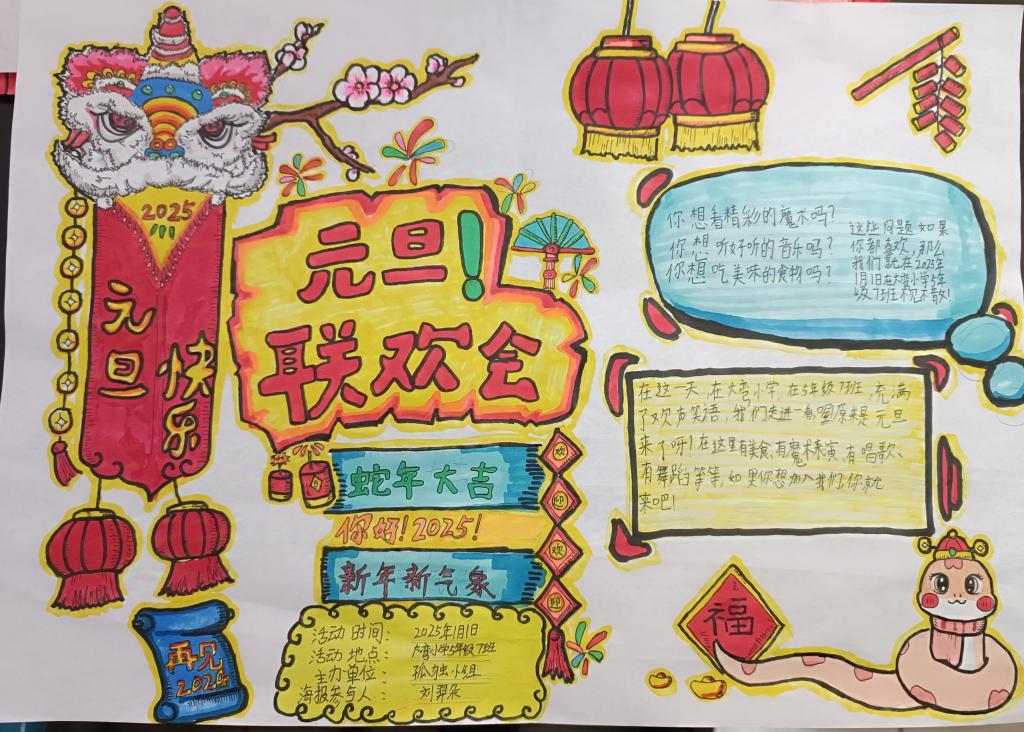 2025
元旦
快乐
元旦!
联欢会
蛇年大吉
你好!2025!
新年新气象
欢
迎
欢
迎
活动时间: 2025年1月1日
活动地点: 大湾小学5年级7班
主办单位: 孤独小组
海报参与人:
再见
2024
你想看精彩的魔术吗?
你想听好听的音乐吗?
你想吃美味的食物吗?
这些问题如果
你都喜欢,那么
我们就在2025年
1月1日在大湾小学5年
级7班不见不散!
在这一天,在大湾小学在5年级7班,充满
了欢声笑语,我们走进一看,嚯!原来是元旦
来了呀!在这里有美食、有魔术表演、有唱歌、
有舞蹈等等,如果你想加入我们,你就
来吧!
福